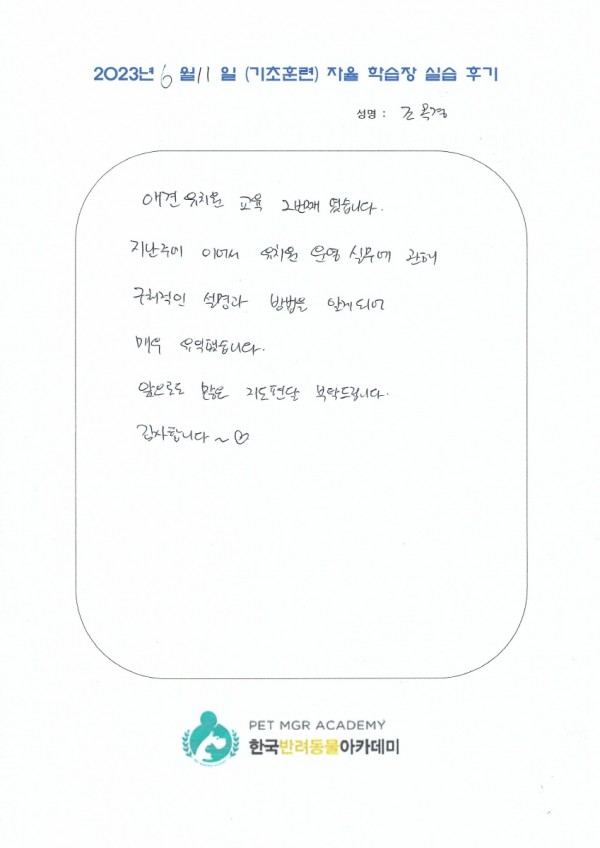 2023년 6 월 11 일 (기초훈련) 자율 학습장 실습 후기
성명 : 조옥경
애견 유치원 교육 2번째 였습니다.
지난주에 이어서 유치원 운영 실무에 관해
구체적인 설명과 방법을 알게되어
매우 유익했습니다.
앞으로도 많은 지도편달 부탁드립니다.
감사합니다~♡
PET MGR ACADEMY
한국반려동물아카데미